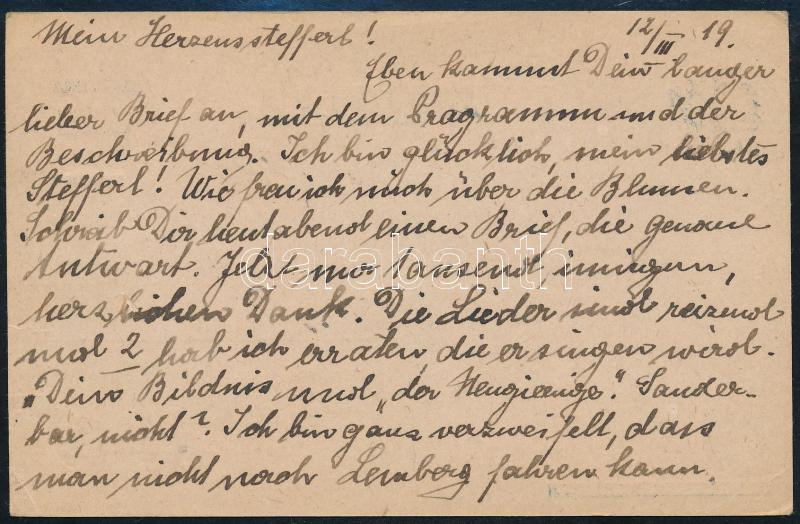 Mein Herzensstefferl! 12/III 19.
Eben kommt Dein langer
lieber Brief an, mit dem Programm und der
Beschreibung. Ich bin glücklich, mein liebstes
Stefferl! Wie freu ich mich über die Blumen.
Schreib Dir heut abend einen Brief, die genaue
Antwort. Jetzt nur tausend, innigen,
herzlichen Dank. Die Lieder sind reizend
und 2 hab ich erraten, die er singen wird.
"Dein Bildnis" und "der Neugierige". Sonder-
bar, nicht? Ich bin ganz verzweifelt, dass
man nicht nach Lemberg fahren kann.
darabanth